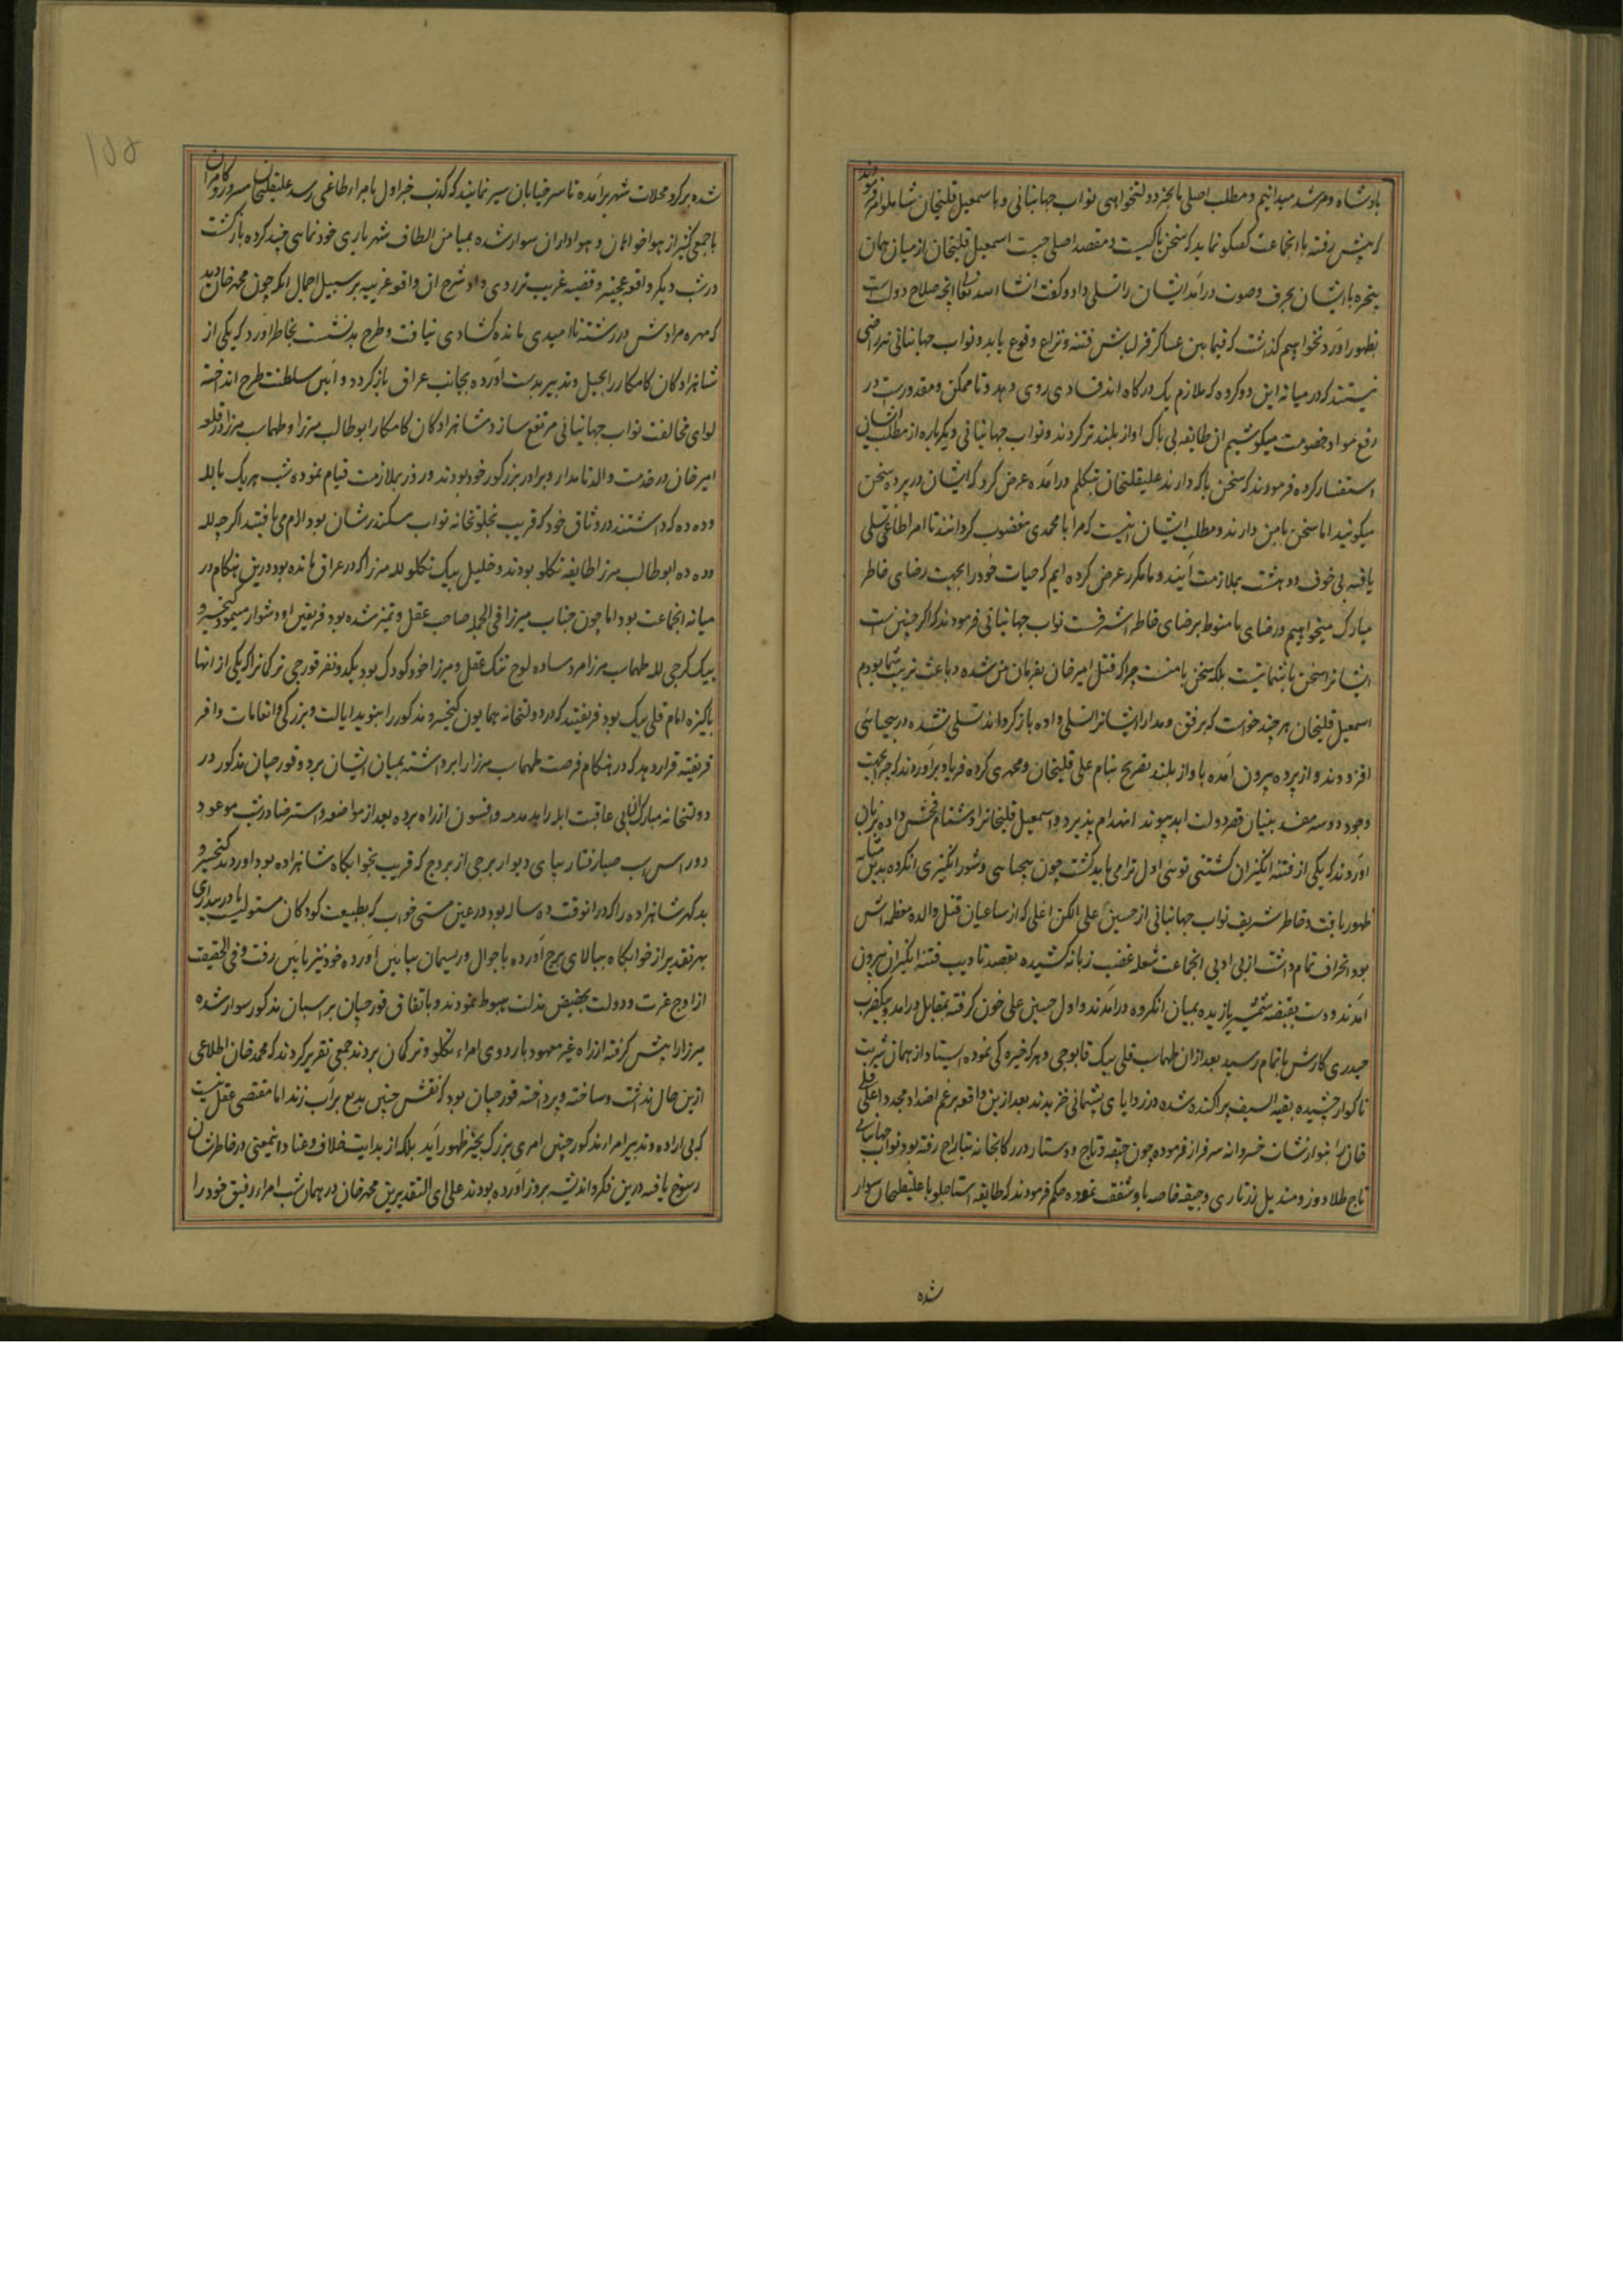 پادشاه و مرشد میدانیم و مطلب اصلی ما بجز دولتخواهی نواب جهانبانی و با سمعیل قلیخان شاملو امر فرمودند
که پیش رفته با انجماعت گفتگو نماید که سخن با کیست و مقصد اصلی چیست اسمعیل قلیخان از میان همان
پنجره با ایشان بحرف و صوت درآمد ایشان را تسلی داد و گفت انشاالله تعالی انچه صلاح دولت است
بظهور اورد نخواهیم گذاشت که فیمابین عساکر قزلباش فتنه و نزاع وقوع یابد و نواب جهانبانی نیز راضی
نیستند که در میانه این دو کروه که ملازم یک درکاه اند فسادی روی دهد و تا ممکن و مقدورست در
رفع مواد خصومت میکوشیم ان طایفه بی باک اواز بلندتر کردند و نواب جهانبانی دیکرباره از مطلب ایشان
استفسار کرده فرمودند که سخن با که دارند علیقلیخان بتکلم درآمده عرض کرد که ایشان در پرده سخن
میکویند اما سخن با من دارند و مطلب ایشان اینست که مرا با محمدی مغضوب کردانند تا امرا طاغی تسلی
یافته بی خوف و دهشت بملازمت آیند و ما مکرر عرض کرده ایم که حیات خود را بجهت رضای خاطر
مبارک میخواهیم و رضای ما منوط برضای خاطر اشرفست نواب جهانبانی فرمودند که اکر چنین است
ایشانرا سخن با شما نیست بلکه سخن با منست چرا که قتل امیر خان بفرمان من شده و باعث تربیت شما بودم
اسمعیل قلیخان هر چند خواست که برفق و مدارا ایشانرا تسلی داده بازکرداند تسلی نشده در بیحیائی
افزودند و از پرده بیرون آمده باواز بلند تصریح بنام علی قلیخان و محمدی کرده فریاد برآوردند که چرا بجهت
وجود دو سه مفسد بنیان قصر دولت ابد پیوند انهدام پذیرد و اسمعیل قلیخانرا دشنام فحش داده بزبان
آوردند که یکی از فتنه انکیزان کشتنی توئی اول ترا می باید کشت چون بیحیائی و شور انکیزی انکروه بدین مثابه
ظهور یافت و خاطر شریف نواب جهانبانی از حسین علی الکن اغلی که از ساعیان قتل والده معظمه اش
بود انحراف تمام داشت از بی ادبی انجماعت شعله غضب زبانه کشیده بقصد تادیب فتنه انکیزان بیرون
آمدند و دست بقبضه شمشیر یازیده بمیان انکروه درآمدند و اول حسین علی خون کرفته بمقابل درآمد و بیکضرب
حیدری کارش باتمام رسید بعد ازان طهماسب قلی بیک قاپوچی و هر که خیره کی نموده ایستاد از همان شربت
ناکوار چشیده بقیه السیف پراکنده شده در زوایای پشیمانی خزیدند بعد ازین واقعه برغم اضداد مجددا علی قلی
خان را بنوازشات خسروانه سرفراز فرموده چون جیقه و تاج و دستار در رکابخانه بتاراج رفته بود نواب جهانبانی
تاج طلادوز و مندیل زرتاری و جیقه خاصه باو شفقت نموده حکم فرمودند که طایفه استاجلو با علیقلیخان سوار
شده
۱۵۵
شده بر کرد محلات شهر برآمده تا سر خیابان سیر نمایند که کذب خبر اول بامراء طاغی رسد علیقلیخان مسرور و کامران
با جمعی کثیر از هواخواهان و هواداران سوار شده بمیامن الطاف شهریاری خودنمایی چند کرده بازکشت
در شب دیکر واقعه عجیبه و قضیه غریب تر روی داد شرح ان واقعه غریبه بر سبیل اجمال انکه چون محمد خان دید
که مهره مرادش در ششدر ناامیدی مانده کشادی نیافت و طرح بد نشست بخاطر آورد که یکی از
شاهزادکان کامکار را بحیل و تدبیر بدست آورده بجانب عراق بازکردد و آیین سلطنت طرح انداخته
لوای مخالفت نواب جهانبانی مرتفع سازد شاهزادکان کامکار ابوطالب میرزا و طهماسب میرزا در قلعه
امیر خان در خدمت والد نامدار و برادر بزرکوار خود بودند و روز بملازمت قیام نموده شب هر یک با لله
و دده که داشتند در وثاق خود که قریب بخلوتخانه نواب سکندرشان بود آرام می یافتند اکرچه لله
و دده ابوطالب میرزا طایفه تکلو بودند و خلیل بیک تکلو لله میرزا که در عراق مانده بود درین هنکام در
میانه انجماعت بود اما چون جناب میرزا فی الجمله صاحب عقل و تمیز شده بود فریفتن او دشوار مینمود کیخسرو
بیک کرجی لله طهماسب میرزا مرد ساده لوح تنک عقل و میرزا خود کودک بود یکدو نفر قورچی ترکمانرا که یکی از انها
پاکیزه امام قلی بیک بود فریفتند که در دولتخانه همایون کیخسرو مذکور را بنوید ایالت و بزرکی و انعامات وافر
فریفته قرار دهد که در هنکام فرصت طهماسب میرزا را برداشته بمیان ایشان برد و قورچیان مذکور در
دولتخانه مبارک آن بی عاقبت ابله را بدمدمه و افسون از راه برده بعد از مواضعه و استرضا در شب موعود
دو راس اسب صبا رفتار بپای دیوار برجی از بروج که قریب بخوابکاه شاهزاده بود اوردند کیخسرو
بدکهر شاهزاده را که در انوقت ده ساله بود در عین مستی خواب که بطبیعت کودکان مستولیست یا در بیداری
بهر تقدیر از خوابکاه ببالای برج آورده با جوال و ریسمان بپائین آورده خود نیز پائین رفت و فی الحقیقت
از اوج عزت و دولت بحضیض مذلت هبوط نمودند و باتفاق قورچیان بر اسبان مذکور سوار شده
میرزا را پیش کرفته از راه غیر معهود باردوی امراء تکلو و ترکمان بردند جمعی تقریر کردند که محمد خان اطلاعی
ازین حال نداشت و ساخته و پرداخته قورچیان بود که نقش چنین بدیع بر آب زدند اما مقتضی عقل نیست
که بی اراده و تدبیر امراء مذکور چنین امری بزرک بحیز ظهور آید بلکه از بدایت خلاف و عناد اینمعنی در خاطرشان
رسوخ یافته درین فکر و اندیشه بروز آورده بودند علی ای التقدیرین محمد خان در همان شب امراء رفیق خود را